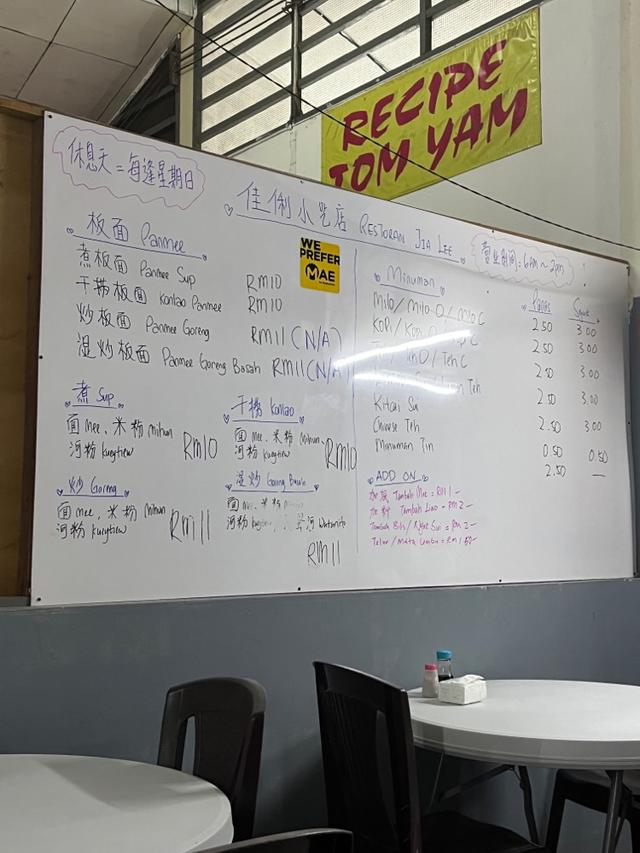 RECIPE
TOM YAM
休息天 = 每逢星期日
佳俐小吃店 RESTORAN JIA LEE
营业时间: 6am ~ 2pm
WE
PREFER
MAE
板面 Panmee
煮板面 Panmee Sup RM10
干捞板面 Konlao Panmee RM10
炒板面 Panmee Goreng RM11 (N/A)
湿炒板面 Panmee Goreng Basah RM11 (N/A)
煮 Sup
面 mee, 米粉 mihun
河粉 kueytiew
RM10
干捞 Konlao
面 mee, 米粉 mihun
河粉 kueytiew
RM10
炒 Goreng
面 mee, 米粉 mihun
河粉 kueytiew
RM11
湿炒 Goreng Basah
面 mee, 米粉
河粉
RM11
Minuman Panas Sejuk
Milo / Milo O / Milo C 2.50 3.00
Kopi / Kopi 2.50 3.00
O / Teh C 2.50 3.00
Teh 2.50 3.00
Kitcai
Chinese Teh 0.50 0.50
Minuman Tin 2.50 —
ADD ON
加面 Tambah Mee = RM1 -
加料 Tambah Liao = RM2 -
Tambah RM2 -
Telur / Mata RM1.50 -